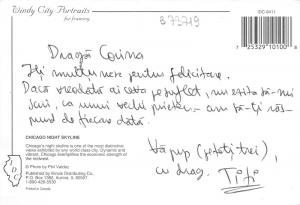 Windy City Portraits
for framing
IDC-0411
B 73719
7 25329 10100 8
Dragă Corina
Îți mulțumesc pentru felicitare.
Dacă vreodată ai ceva pe suflet, nu ezita să-mi
scrii, ca unui vechi prieten – am să-ți răs-
pund de fiecare dată.
Vă pup (pe toți trei),
cu drag,
Titi
CHICAGO NIGHT SKYLINE
Chicago's night skyline is one of the most distinctive
views exhibited by any world class city. Dynamic and
vibrant, Chicago exemplifies the economic strength of
the midwest.
© Photo by Phil Valdez
Published by Illinois Distributing Co.
P.O. Box 1382, Aurora, IL 60507
1-800-428-5530
Printed in Canada
IDC